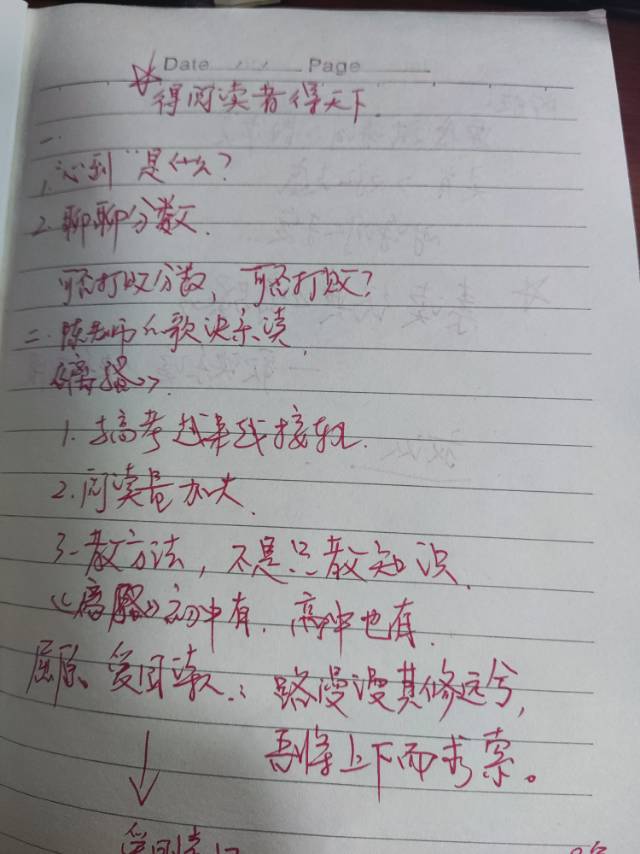 Date / / Page
得阅读者得天下.
一.
1. "心到"是什么?
2. 聊聊分散.
可否打败分散, 可否打败?
二. 陈老师《歌诀亲读
《离骚》>
1. 与高考越来越接轨.
2. 阅读量加大.
3. 教方法, 不是只教知识.
《离骚》初中有. 高中也有.
屈原、爱国诗人: 路漫漫其修远兮,
吾将上下而求索。